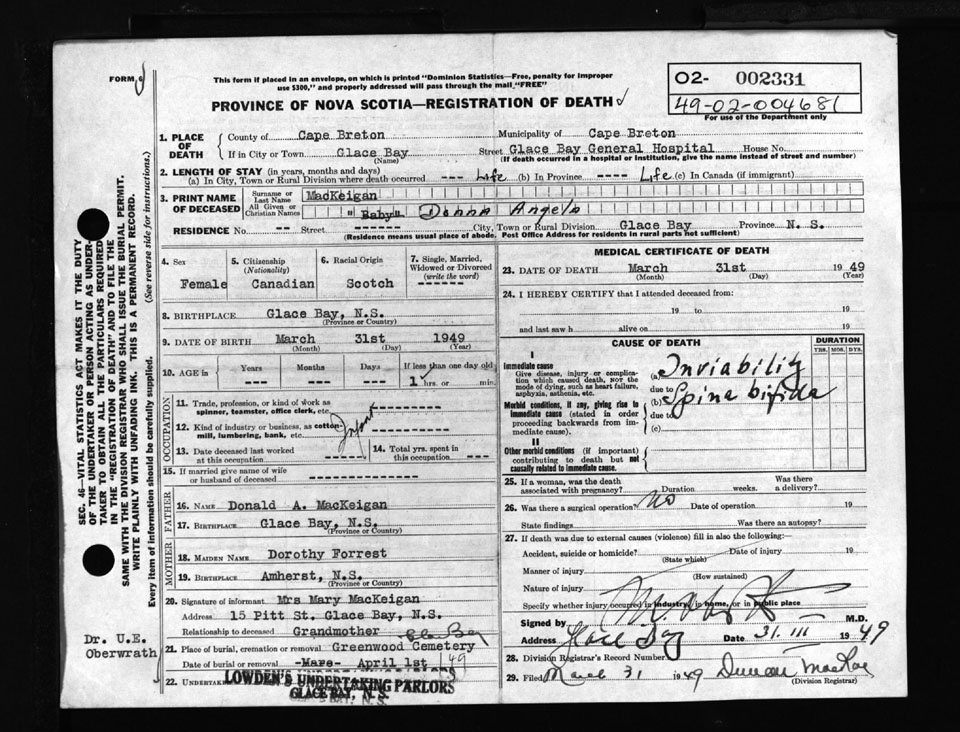 FORM 6
This form if placed in an envelope, on which is printed "Dominion Statistics—Free, penalty for improper
use $300," and properly addressed will pass through the mail "FREE"
PROVINCE OF NOVA SCOTIA—REGISTRATION OF DEATH
O2- 002331
49-02-004681
For use of the Department only
1. PLACE OF DEATH
County of Cape Breton Municipality of Cape Breton
If in City or Town Glace Bay Street Glace Bay General Hospital House No.
(Name) (If death occurred in a hospital or institution, give the name instead of street and number)
2. LENGTH OF STAY (in years, months and days)
(a) In City, Town or Rural Division where death occurred --- Life (b) In Province ---- Life (c) In Canada (if immigrant)
3. PRINT NAME OF DECEASED
Surname or Last Name MacKeigan
All Given or Christian Names "Baby" Donna Angela
RESIDENCE No. -- Street ------- City, Town or Rural Division Glace Bay Province N. S.
(Residence means usual place of abode. Post Office Address for residents in rural parts not sufficient)
4. Sex
Female
5. Citizenship
(Nationality)
Canadian
6. Racial Origin
Scotch
7. Single, Married, Widowed or Divorced
(write the word)
-------
8. BIRTHPLACE Glace Bay, N.S.
(Province or Country)
9. DATE OF BIRTH March 31st 1949
(Month) (Day) (Year)
10. AGE in Years Months Days If less than one day old
---- ---- --- 1 hrs. or min.
OCCUPATION
11. Trade, profession, or kind of work as
spinner, teamster, office clerk, etc.
12. Kind of industry or business, as cotton-
mill, lumbering, bank, etc.
Infant
13. Date deceased last worked
at this occupation
14. Total yrs. spent in
this occupation
15. If married give name of wife
or husband of deceased
FATHER
16. Name Donald A. MacKeigan
17. BIRTHPLACE Glace Bay, N.S.
(Province or Country)
MOTHER
18. MAIDEN NAME Dorothy Forrest
19. BIRTHPLACE Amherst, N.S.
(Province or Country)
20. Signature of informant Mrs Mary MacKeigan
Address 15 Pitt St. Glace Bay, N.S.
Relationship to deceased Grandmother
21. Place of burial, cremation or removal Greenwood Cemetery
Glace Bay
Date of burial or removal -Mare- April 1st 49
22. Undertaker LOWDEN'S UNDERTAKING PARLORS
GLACE BAY, N.S.
MEDICAL CERTIFICATE OF DEATH
23. DATE OF DEATH March 31st 1949
(Month) (Day) (Year)
24. I HEREBY CERTIFY that I attended deceased from:
19 to 19
and last saw h alive on 19
CAUSE OF DEATH
DURATION
YRS. MOS. DYS.
I
Immediate cause
Give disease, injury or complica-
tion which caused death, NOT the
mode of dying, such as heart failure,
asphyxia, asthenia, etc.
(a) Inviability
due to
Morbid conditions, if any, giving rise to
immediate cause (stated in order
proceeding backwards from im-
mediate cause).
(b) Spina bifida
due to
(c)
II
Other morbid conditions (if important)
contributing to death but not
causally related to immediate cause.
25. If a woman, was the death
associated with pregnancy? Duration weeks. Was there
a delivery?
26. Was there a surgical operation? No Date of operation 19
State findings Was there an autopsy?
27. If death was due to external causes (violence) fill in also the following:—
Accident, suicide or homicide? Date of injury 19
(State which)
Manner of injury
(How sustained)
Nature of injury
Specify whether injury occurred in industry, in home, or in public place
Signed by M.D.
Address Glace Bay Date 31. III 1949
28. Division Registrar's Record Number
29. Filed March 31 1949 Duncan MacRae
(Division Registrar)
SEC. 46—VITAL STATISTICS ACT MAKES IT THE DUTY
OF THE UNDERTAKER OR PERSON ACTING AS UNDER-
TAKER TO OBTAIN ALL THE PARTICULARS REQUIRED
IN THE "REGISTRATION OF DEATH" AND TO FILE THE
SAME WITH THE DIVISION REGISTRAR WHO SHALL ISSUE THE BURIAL PERMIT.
WRITE PLAINLY WITH UNFADING INK. THIS IS A PERMANENT RECORD.
Every item of information should be carefully supplied. (See reverse side for instructions.)
Dr. U.E.
Oberwrath